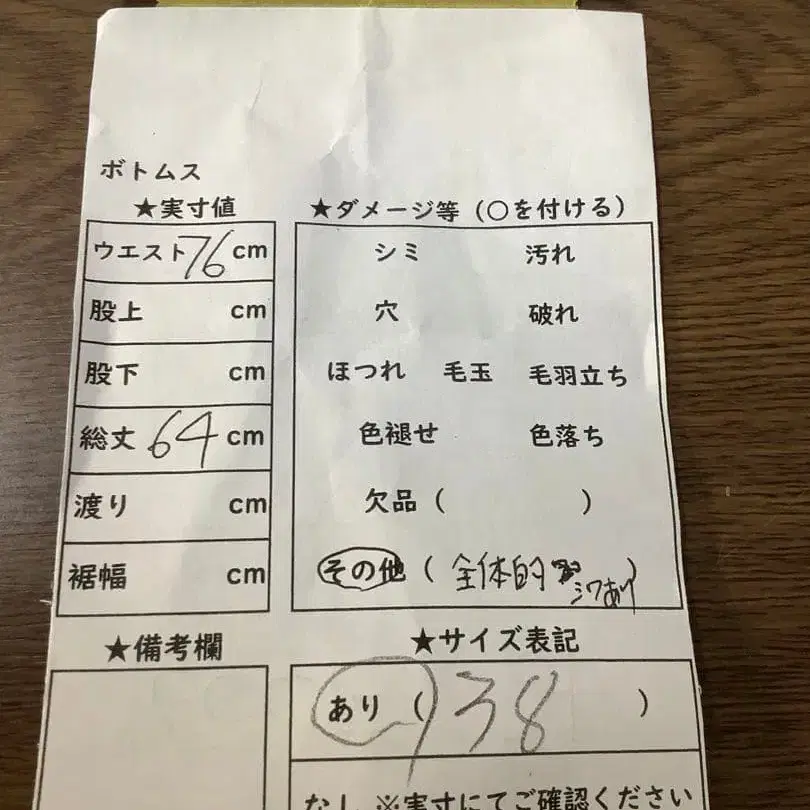 ボトムス
★実寸値
ウエスト 76 cm
股上 cm
股下 cm
総丈 64 cm
渡り cm
裾幅 cm
★ダメージ等(○を付ける)
シミ 汚れ
穴 破れ
ほつれ 毛玉 毛羽立ち
色褪せ 色落ち
欠品( )
その他(全体的 シワあり)
★備考欄
★サイズ表記
あり(38)
なし ※実寸にてご確認ください